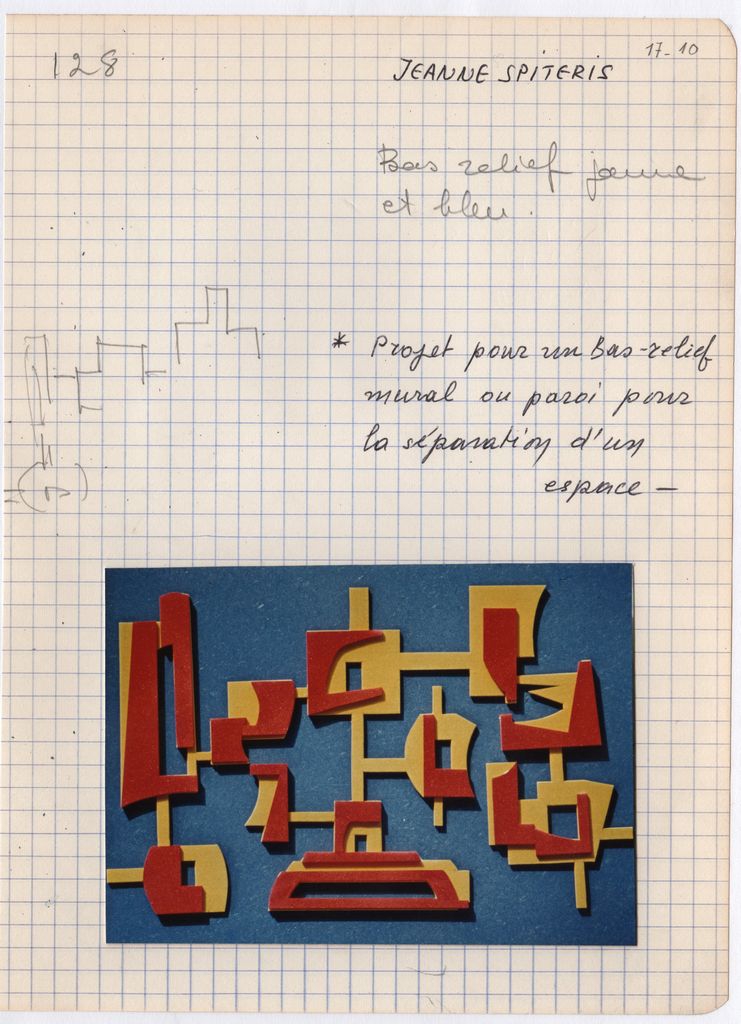 128
17-10
JEANNE SPITERIS
Bas relief jaune
et bleu.
* Projet pour un Bas-relief
mural ou paroi pour
la séparation d'un
espace —